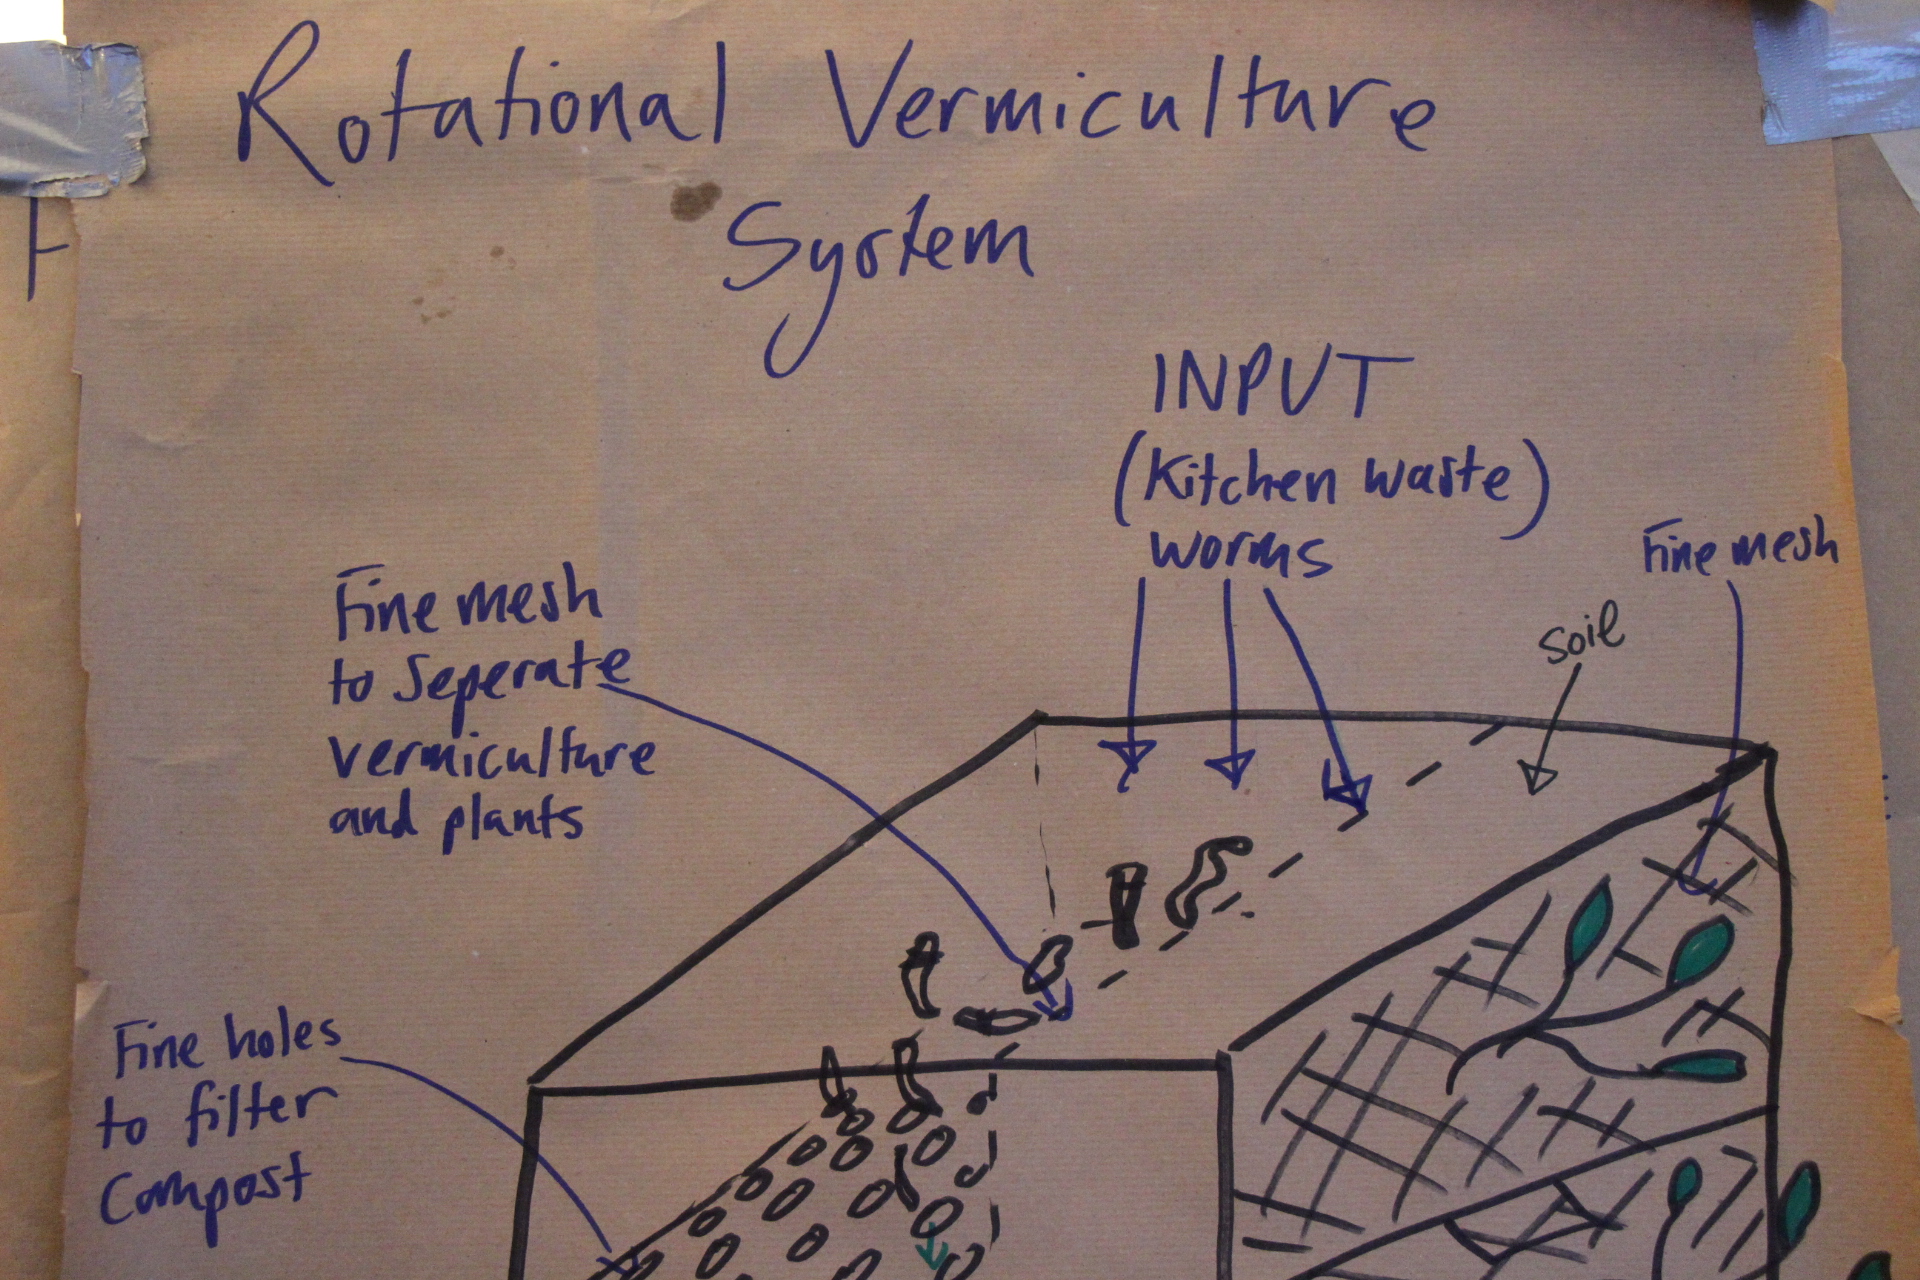 Rotational Vermiculture
System
INPUT
(Kitchen waste)
worms
Fine mesh
soil
Fine mesh
to Seperate
vermiculture
and plants
Fine holes
to filter
Compost
F